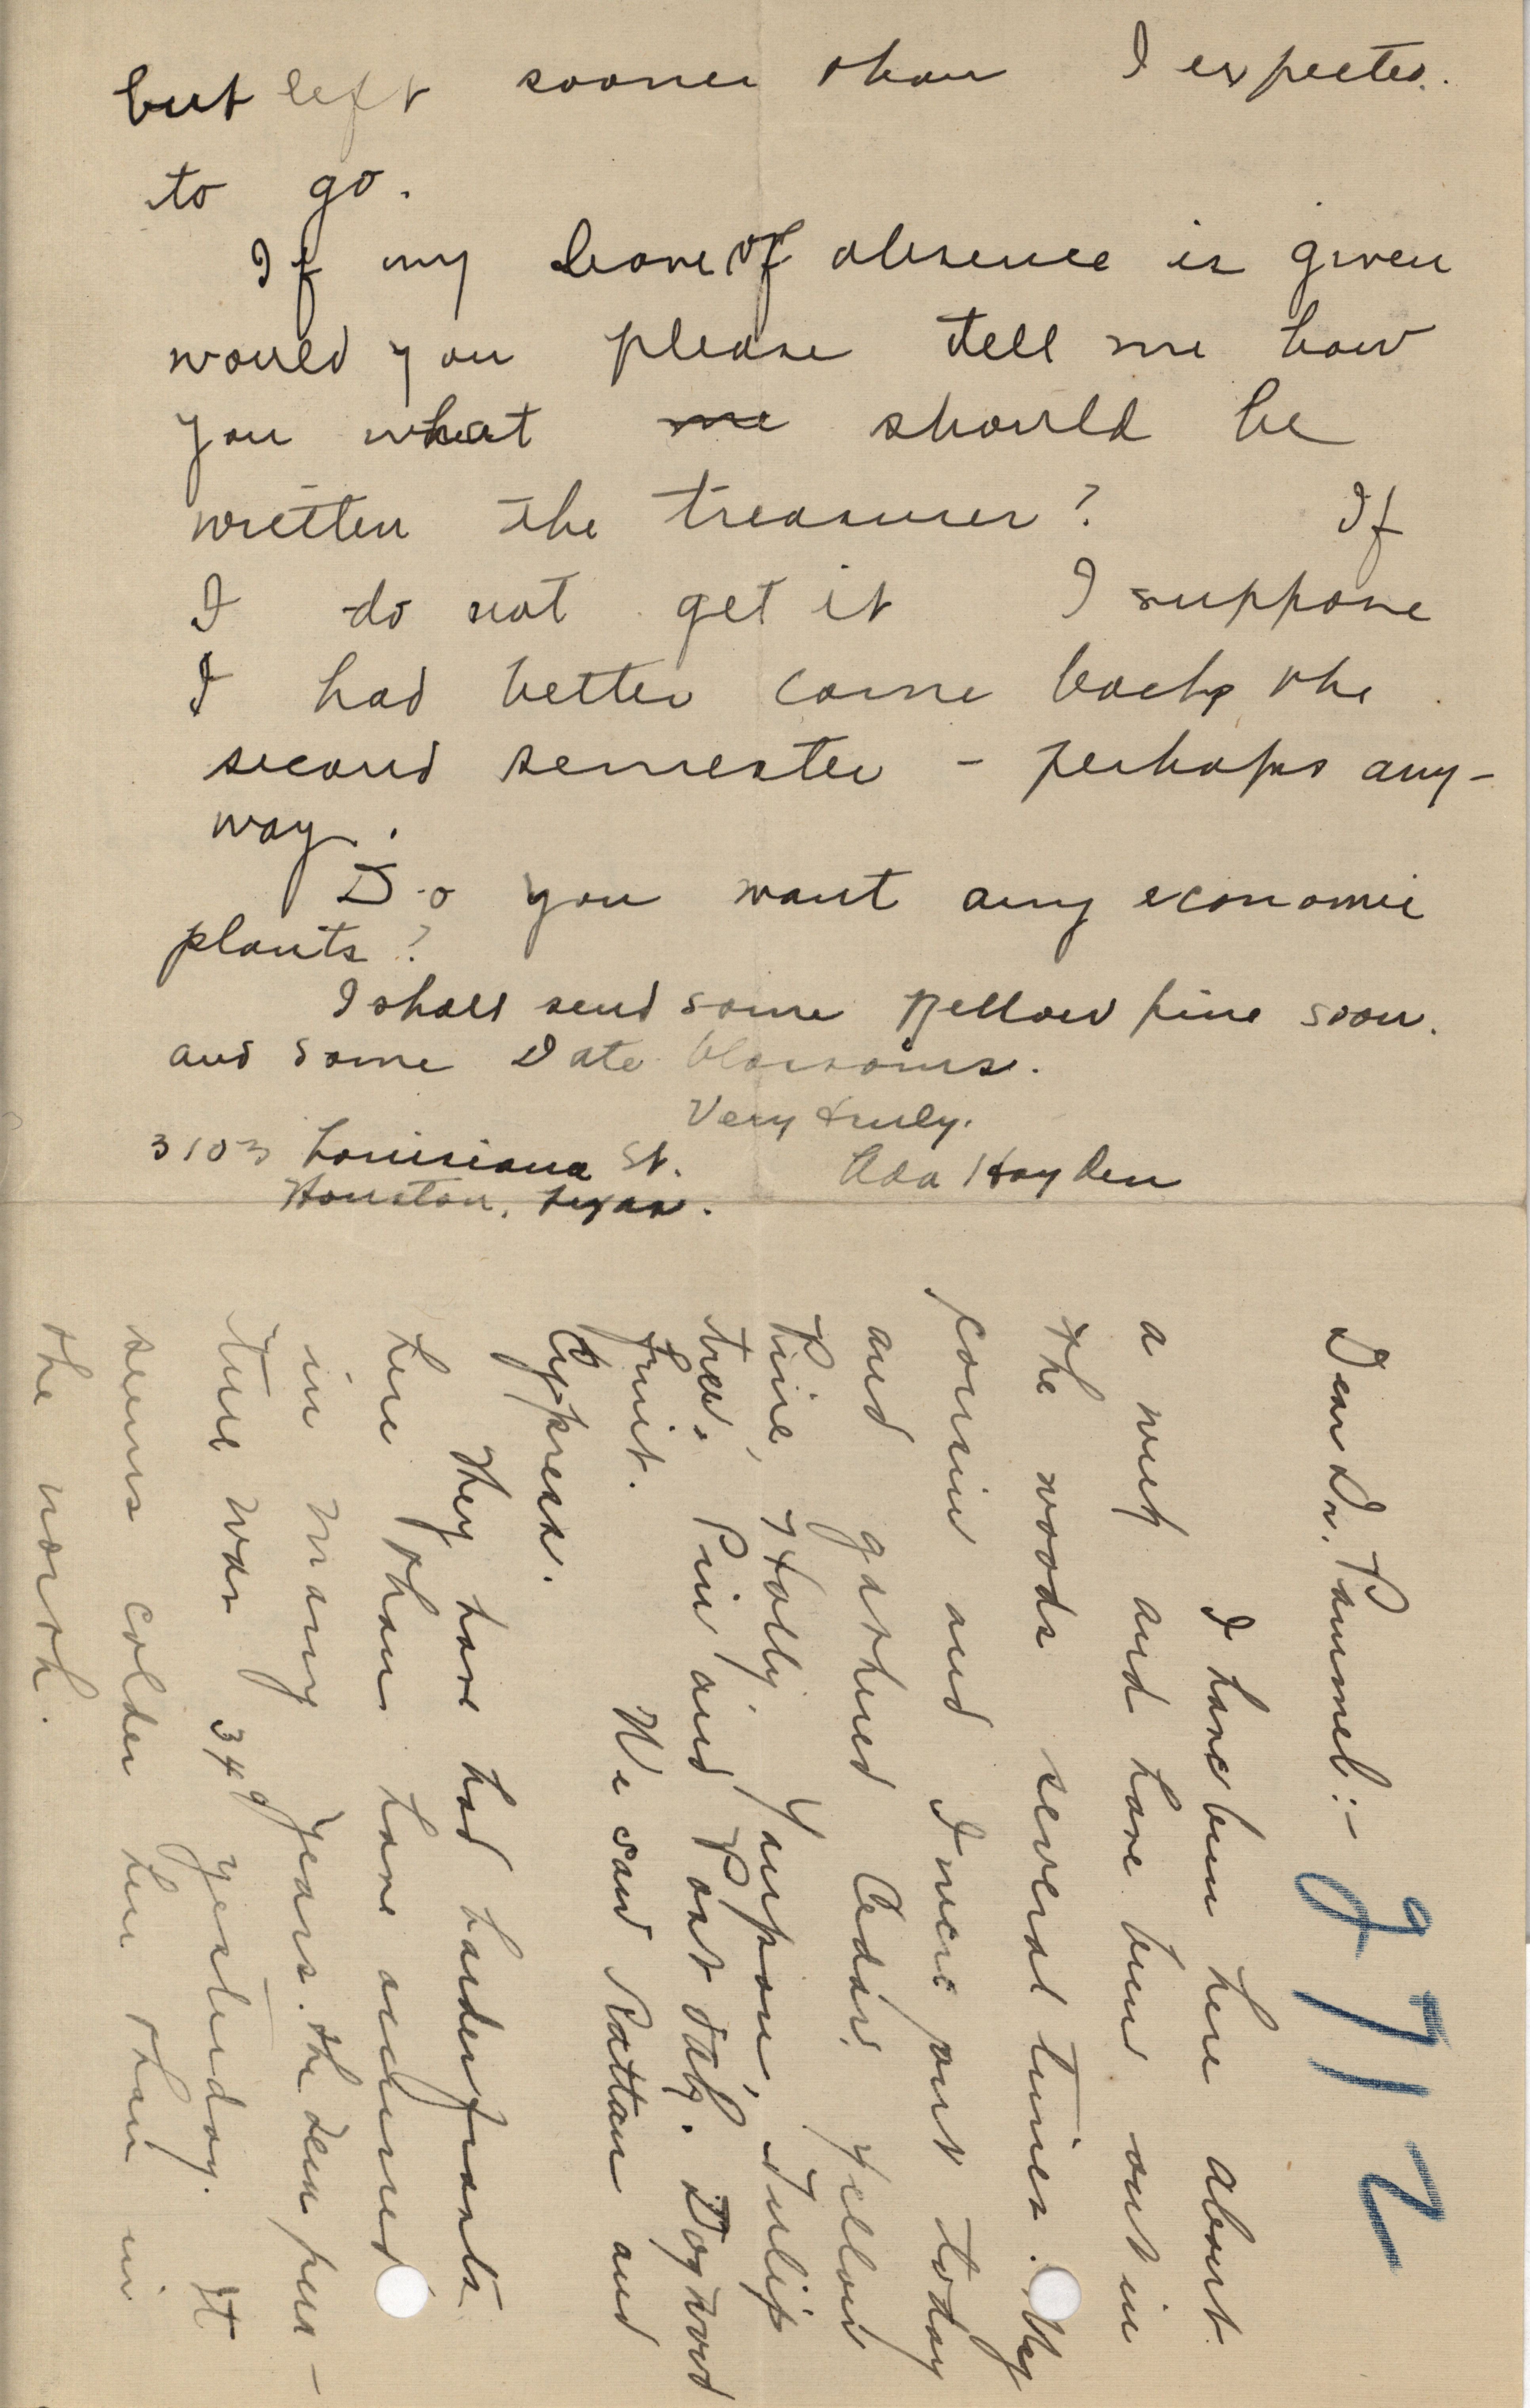 but left sooner than I expected
to go.
If my leave of absence is given
would you please tell me how
you what me should be
written the treasurer? If
I do not get it I suppose
I had better come back the
second semester - perhaps any-
way.
Do you want any economic
plants?
I shall send some yellow pine soon.
and some Date blossoms.
Very truly.
3103 Louisiana St. Ada Hayden
Houston, Texas.
Dear Dr. Pammel:-
I have been here about
a week and have been out in
the woods several times. My
cousin and I were out today
and gathered Cedar, Yellow
Pine, Holly, Yaupon, Tulip
trees, Pin and Post Oak. Dogwood
fruit. We saw Rattan and
Cypress.
They have had harder frosts
here than have occurred
in many years. The tem pera-
ture was 34° yesterday. It
seems colder here than in
the north.